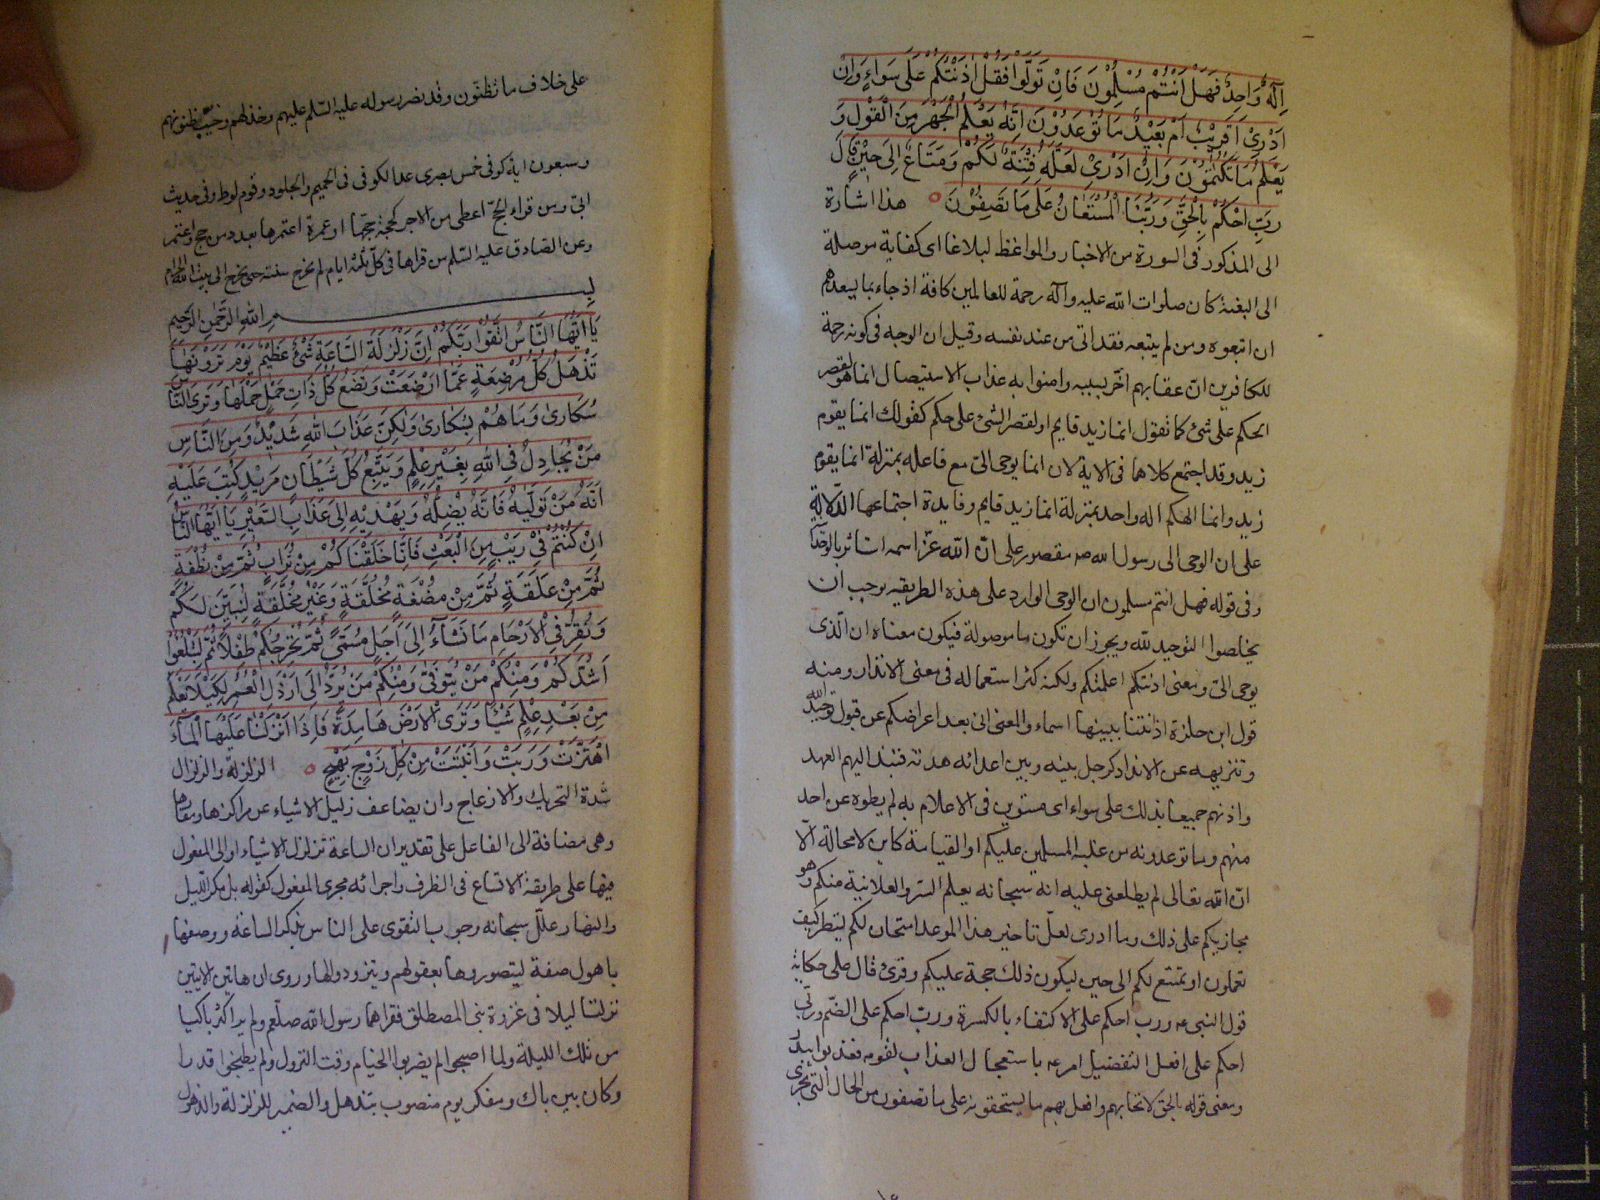 اِلٰهٌ وَاحِدٌ فَهَلْ اَنْتُمْ مُسْلِمُونَ فَاِنْ تَوَلَّوْا فَقُلْ اٰذَنْتُكُمْ عَلٰى سَوَاءٍ وَاِنْ
اَدْرِىْ اَقَرِيْبٌ اَمْ بَعِيْدٌ مَا تُوْعَدُوْنَ اِنَّهُ يَعْلَمُ الْجَهْرَ مِنَ الْقَوْلِ وَ
يَعْلَمُ مَا تَكْتُمُوْنَ وَاِنْ اَدْرِىْ لَعَلَّهُ فِتْنَةٌ لَكُمْ وَمَتَاعٌ اِلٰى حِيْنٍ قَالَ
رَبِّ احْكُمْ بِالْحَقِّ وَرَبُّنَا الرَّحْمٰنُ الْمُسْتَعَانُ عَلٰى مَا تَصِفُوْنَ هذا اشارة
الى المذكور فى السورة من الاخبار والمواعظ لبلاغا اى كفاية موصلة
الى البغية كان صلوات الله عليه وآله رحمة للعالمين كافة اذ جاء بما يسعدهم
ان اتبعوه ومن لم يتبعه فقد اتى من عند نفسه وقيل ان الوجه فى كونه رحمة
للكافرين ان عقابهم اخر بسببه وامنوا به عذاب الاستيصال انما هو لقصر
الحكم على شئ كما تقول انما زيد قايم او لقصر الشئ على حكم كقولك انما يقوم
زيد وقد اجتمع كلاهما فى الاية لان انما يوحى الىّ مع فاعله بمنزلة انما يقوم
زيد وانما الهكم اله واحد بمنزلة انما زيد قايم وفايدة اجتماعهما الدلالة
على ان الوحى الى رسول الله صه مقصور على ان الله عزّ اسمه استاثر بالوحدانية
وفى قوله فهل انتم مسلمون ان الوحى الوارد على هذه الطريقة يوجب ان
يخلصوا التوحيد لله ويجوز ان تكون ما موصولة فيكون معناه ان الذى
يوحى الىّ ومعنى اذنتكم اعلمتكم ولكنه كثر استعماله فى معنى الانذار ومنه
قول ابن حلزة اذنتنا ببينها اسماء والمعنى انى بعد اعراضكم عن قبول توحيد الله
وتنزيهه عن الانداد كرجل بينه وبين اعدائه هدنة فنبذ اليهم العهد
واذنهم جميعا بذلك على سواء اى مستوين فى الاعلام به لم يطوه عن احد
منهم وما توعدونه من غلبة المسلمين عليكم او القيامة كاين لا محالة الا
ان الله تعالى لم يطلعنى عليه انه سبحانه يعلم السر والعلانية منكم وهو
مجازيكم على ذلك وما ادرى لعلّ تاخير هذا الموعد امتحان لكم لينظر كيف
تعملون او تمتيع لكم الى حين ليكون ذلك حجة عليكم وقرئ قال على حكاية
قول النبى عه ورب احكم على الاكتفاء بالكسرة وربّ احكم على الضم وربّى
احكم على افعل التفضيل امر عه باستعجال العذاب لقومه فعذبوا ببدر
ومعنى قوله بالحق لا تحابهم وافعل بهم ما يستحقونه على ما تصفون من الحال التى تجرى
على خلاف ما تظنون وقد نصر رسوله عليه السلم عليهم وخذلهم وخيّب ظنونهم
وسبعون اية كوفى خمس بصرى عد الكوفى فى الحميم والجلود وقوم لوط وفى حديث
ابىّ ومن قراء الحجّ اعطى من الاجر كحجة حجّها او عمرة اعتمرها بعدد من حج واعتمر
وعن الصادق عليه السّلم من قراها فى كل ثلثة ايام لم تخرج سنته حتى يخرج الى بيت الله الحرام
بِسْمِ اللهِ الرَّحْمٰنِ الرَّحِيْمِ
يَا اَيُّهَا النَّاسُ اتَّقُوْا رَبَّكُمْ اِنَّ زَلْزَلَةَ السَّاعَةِ شَىْءٌ عَظِيْمٌ يَوْمَ تَرَوْنَهَا
تَذْهَلُ كُلُّ مُرْضِعَةٍ عَمَّا اَرْضَعَتْ وَتَضَعُ كُلُّ ذَاتِ حَمْلٍ حَمْلَهَا وَتَرَى النَّاسَ
سُكَارٰى وَمَا هُمْ بِسُكَارٰى وَلٰكِنَّ عَذَابَ اللهِ شَدِيْدٌ وَمِنَ النَّاسِ
مَنْ يُجَادِلُ فِى اللهِ بِغَيْرِ عِلْمٍ وَيَتَّبِعُ كُلَّ شَيْطَانٍ مَرِيْدٍ كُتِبَ عَلَيْهِ
اَنَّهُ مَنْ تَوَلَّاهُ فَاَنَّهُ يُضِلُّهُ وَيَهْدِيْهِ اِلٰى عَذَابِ السَّعِيْرِ يَا اَيُّهَا النَّاسُ
اِنْ كُنْتُمْ فِىْ رَيْبٍ مِنَ الْبَعْثِ فَاِنَّا خَلَقْنَاكُمْ مِنْ تُرَابٍ ثُمَّ مِنْ نُطْفَةٍ
ثُمَّ مِنْ عَلَقَةٍ ثُمَّ مِنْ مُضْغَةٍ مُخَلَّقَةٍ وَغَيْرِ مُخَلَّقَةٍ لِنُبَيِّنَ لَكُمْ
وَنُقِرُّ فِى الْاَرْحَامِ مَا نَشَاءُ اِلٰى اَجَلٍ مُسَمًّى ثُمَّ نُخْرِجُكُمْ طِفْلًا ثُمَّ لِتَبْلُغُوْا
اَشُدَّكُمْ وَمِنْكُمْ مَنْ يُتَوَفّٰى وَمِنْكُمْ مَنْ يُرَدُّ اِلٰى اَرْذَلِ الْعُمُرِ لِكَيْلَا يَعْلَمَ
مِنْ بَعْدِ عِلْمٍ شَيْئًا وَتَرَى الْاَرْضَ هَامِدَةً فَاِذَا اَنْزَلْنَا عَلَيْهَا الْمَاءَ
اهْتَزَّتْ وَرَبَتْ وَاَنْبَتَتْ مِنْ كُلِّ زَوْجٍ بَهِيْجٍ الزلزلة والزلزال
شدة التحريك والازعاج وان يضاعف زليل الاشياء عن مراكزها ومقارها
وهى مضافة الى الفاعل على تقدير ان الساعة تزلزل الاشياء او الى المفعول
فيها على طريقة الاتساع فى الظرف واجرائه مجرى المفعول كقوله بل مكر الليل
والنهار علّل سبحانه وجوب التقوى على الناس بذكر الساعة ووصفها
باهول صفة ليتصوروها بعقولهم ويتزودوا لها وروى ان هاتين الايتين
نزلتا ليلا فى غزوة بنى المصطلق فقراهما رسول الله صلعم ولم ير اكثر باكيا
من تلك الليلة ولما اصبحوا لم يضربوا الخيام وقت النزول ولم يطبخوا قدرا
وكان بين باك ومفكر يوم منصوب بتذهل والضمير للزلزلة والذهول